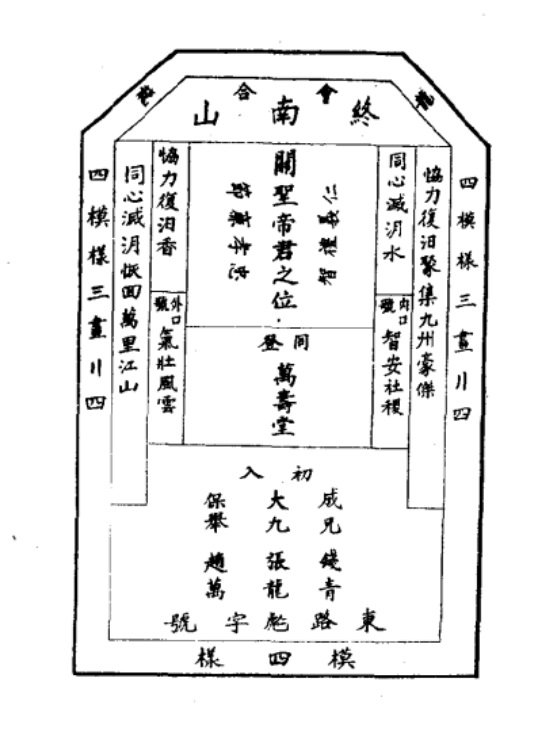 龍會合
終南山
四模樣三畫川四
協力復汩聚集九州豪傑
同心滅汌水
內口號
智安社稷
仁義禮智
關聖帝君之位
忠孝義節
同登
萬壽堂
協力復汩香
外口號
氣壯風雲
同心滅汌恢回萬里江山
四模樣三畫川四
初入
成兄 錢青
大九 張龍
保舉 趙萬
東路彪字號
模四樣